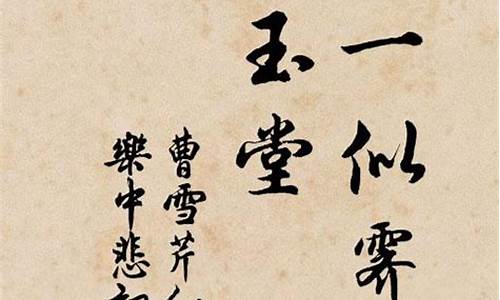 一似霽
玉堂
曹雪芹
樂中悲